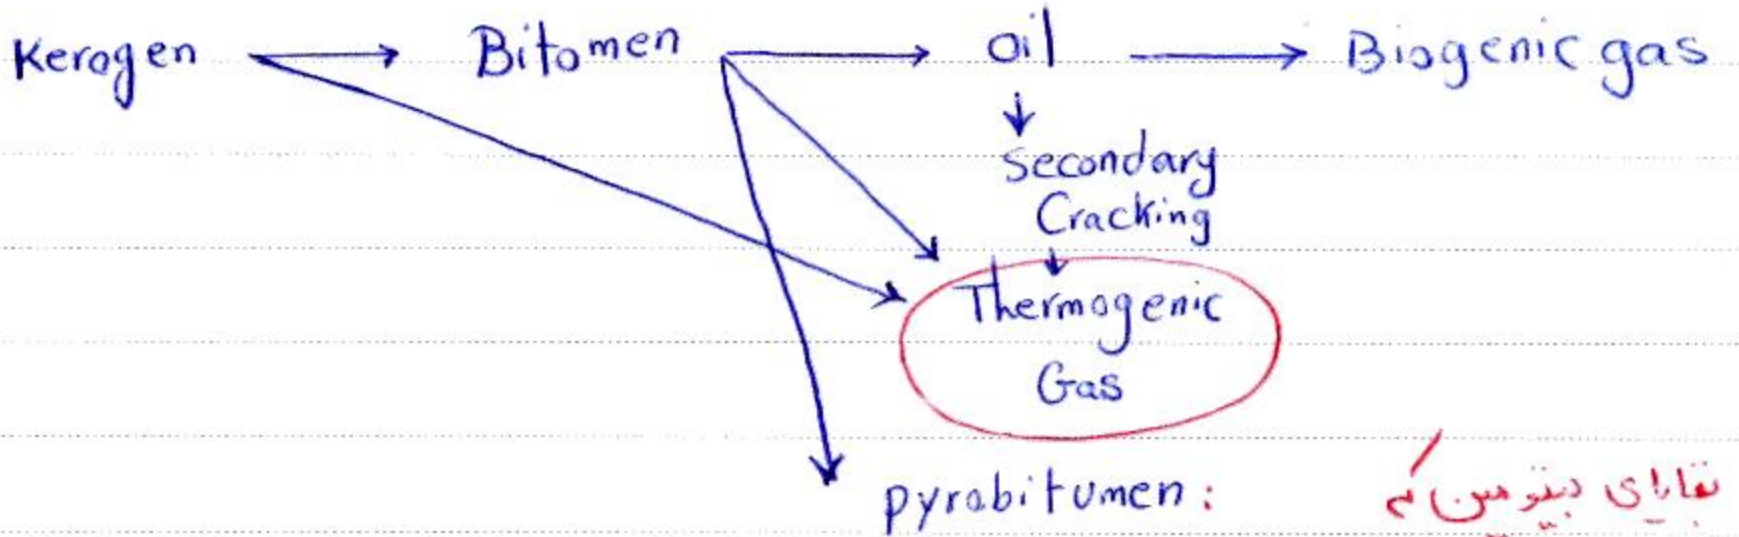 Kerogen → Bitomen → oil → Biogenic gas
↓
Secondary
Cracking
↓
Thermogenic
Gas
pyrobitumen : بقایای بیتومین که